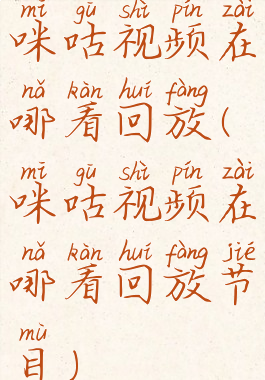 mī gū shì pín zài
咪咕视频在
nǎ kàn huí fàng
哪看回放(
mī gū shì pín zài
咪咕视频在
nǎ kàn huí fàng jié
哪看回放节
mù
目)